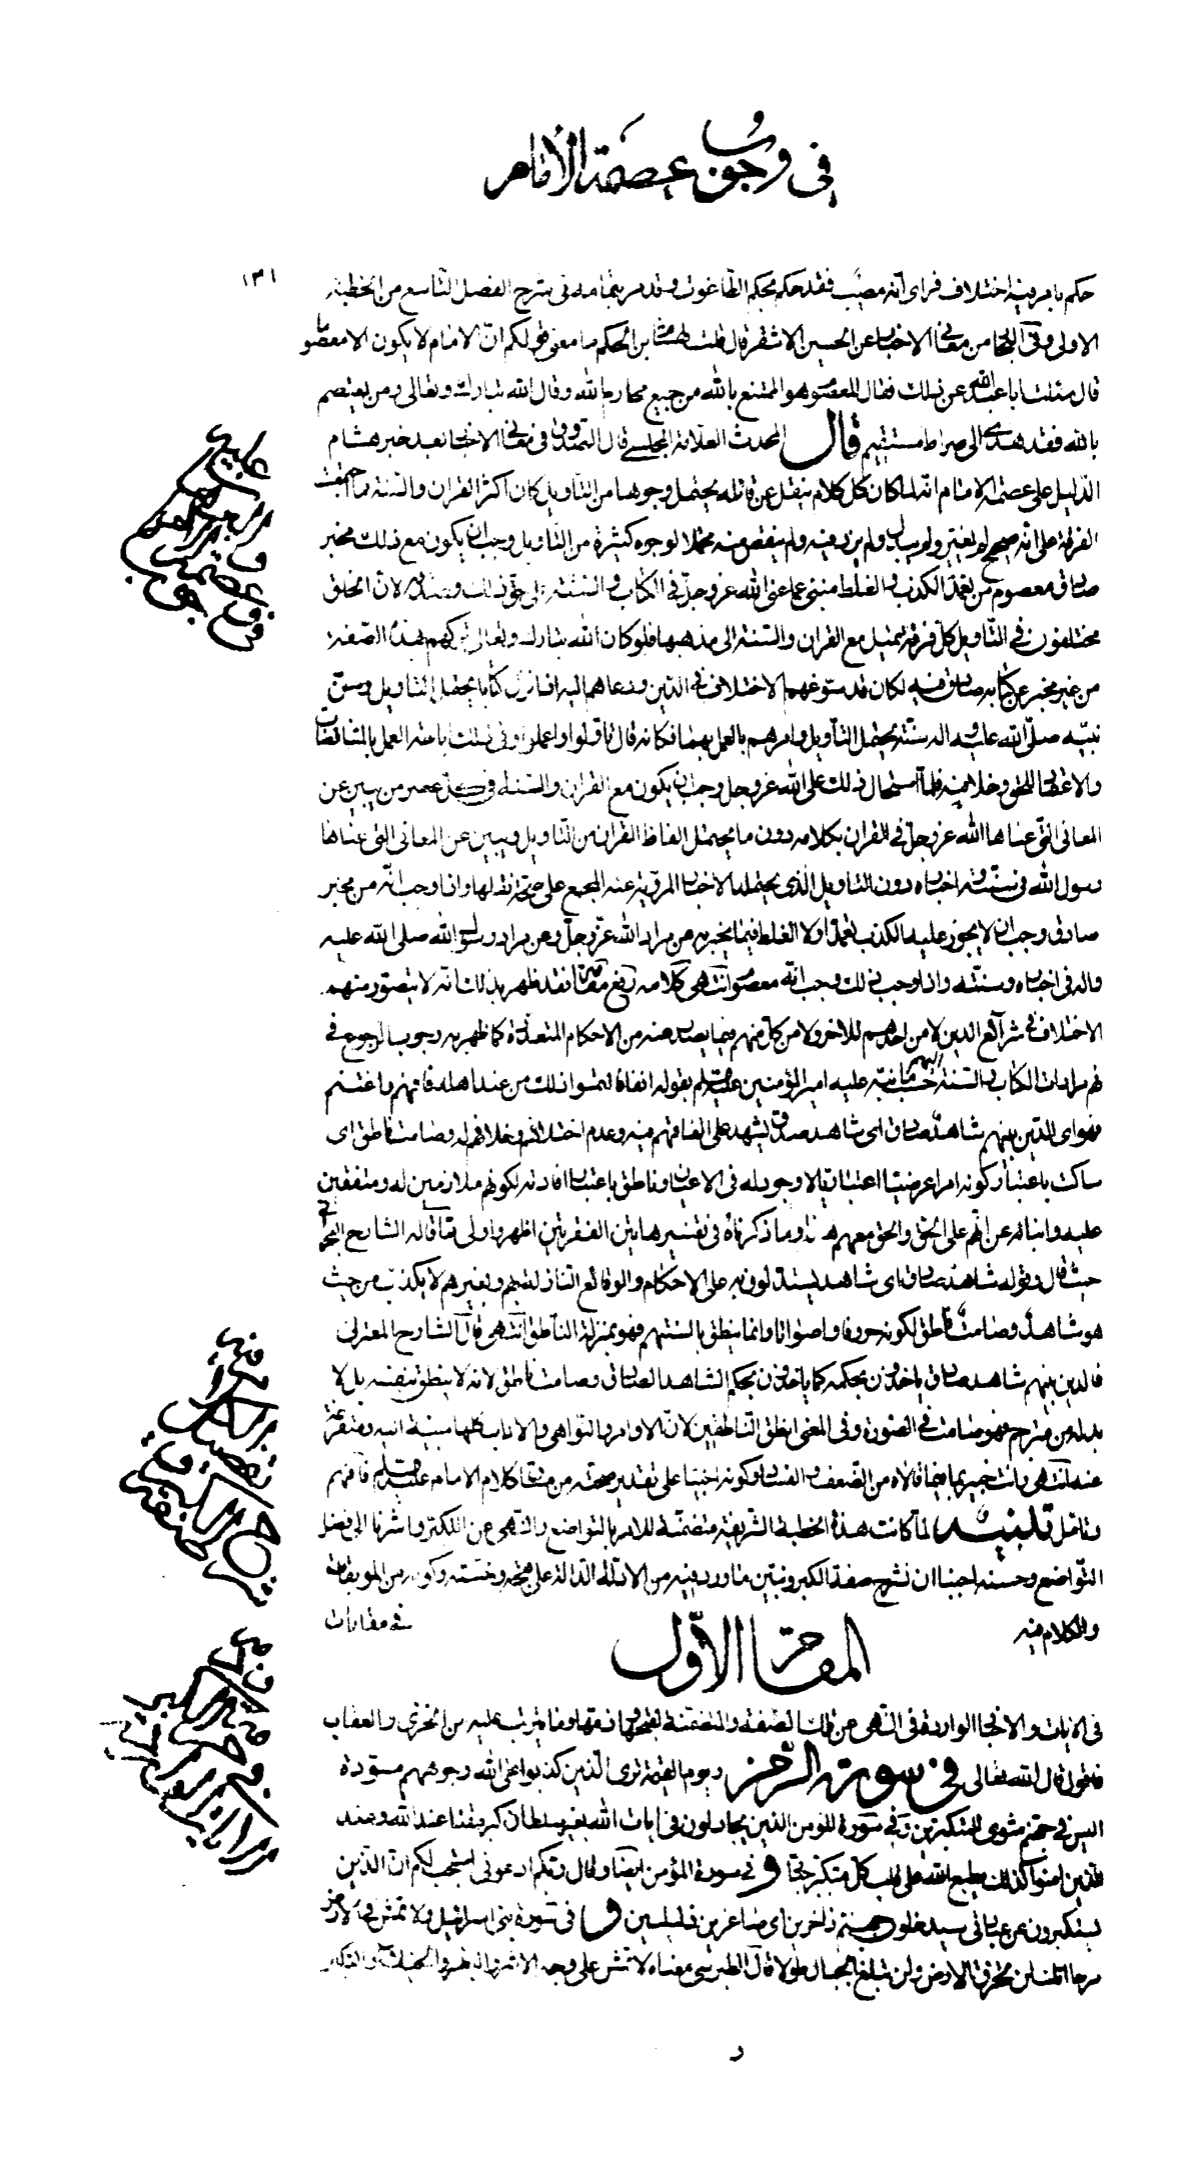 في وجوب عصمة الإمام
١٣١
حكم بامر فيه اختلاف فرأى انه مصيب فقد حكم بحكم الطاغوت وقد مر بتمامه في شرح الفصل التاسع من الخطبة
الاولى وفي البحار من معاني الاخبار عن الحسين الاشقر قال قلت لهشام بن الحكم ما معنى قولكم ان الامام لا يكون الا معصوما
قال سئلت ابا عبد الله عن ذلك فقال المعصوم هو الممتنع بالله من جميع محارم الله وقال الله تبارك وتعالى ومن يعتصم
بالله فقد هدى الى صراط مستقيم قال المحدث العلامة المجلسي قال الصدوق في معاني الاخبار بعد خبر هشام
الدليل على عصمة الامام انه لما كان كل كلام ينقل عن قائله يحتمل وجوها من التأويل كان اكثر القران والسنة مما اجمعت
الفرق على انه صحيح لم يغير ولم يبدل ولم يزد فيه ولم ينقص منه محتملا لوجوه كثيرة من التأويل وجب ان يكون مع ذلك مخبر
صادق معصوم من تعمد الكذب والغلط منبئ عما عنى الله عز وجل في الكتاب والسنة على حق ذلك وصدقه لان الخلق
مختلفون في التأويل كل فرقة تميل مع القران والسنة الى مذهبها فلو كان الله تبارك وتعالى تركهم بهذه الصفة
من غير مخبر عن كتابه صادق فيه لكان قد سوغهم الاختلاف في الدين ودعاهم اليه اذ انزل كتابا يحتمل التأويل وسن
نبيه صلى الله عليه واله سنة يحتمل التأويل وامرهم بالعمل بهما فكانه قال تأولوا واعملوا وفي ذلك اباحة العمل بالمتناقضات
والاعتماد للحق وخلافه فلما استحال ذلك على الله عز وجل وجب ان يكون مع القران والسنة في كل عصر من يبين عن
المعاني التي عناها الله عز وجل في القران بكلامه دون ما يحتمل الفاظ القران من التأويل ويبين عن المعاني التي عناها
رسول الله في سننه واخباره دون التأويل الذي يحتمله الاخبار المروية عنه المجمع على صحة نقلها واذا وجب انه من مخبر
صادق وجب ان لا يجوز عليه الكذب تعمدا ولا الغلط فيما يخبر به من مراد الله عز وجل وعن مراد رسول الله صلى الله عليه
واله في اخباره وسننه واذا وجب ذلك وجب انه معصوم انتهى كلامه رفع مقامه فقد ظهر بذلك انه لا يتصور منهم
الاختلاف في شرائع الدين لا من احدهم للاخر ولا من كل منهم فيما يصدر عنه من الاحكام المتعددة كما ظهر به وجوب الرجوع في
فهم مرادات الكتاب والسنة اليهم حسب ما نبه عليه امير المؤمنين عليه السلم بقوله انفا فالتمسوا ذلك من عند اهله فافهم واغتنم
فهو اي الدين بينهم شاهد صادق اي شاهد صدق يشهد على اتفاقهم فيه وعدم اختلافهم وخلافهم له وصامت ناطق اي
ساكت باعتبار كونه امرا عرضيا اعتباريا لا وجود له في الاعيان وناطق باعتبار افادته لكونهم ملازمين له ومتفقين
عليه وانبائه عن انهم على الحق والحق معهم هذا وما ذكرناه في تفسير هاتين الفقرتين اظهر واولى مما قاله الشارح البحراني
حيث قال وقوله شاهد صادق اي شاهد يستدلون به على الاحكام والوقائع النازلة بهم وبغيرهم لا يكذب من حيث
هو شاهد وصامت ناطق لكونه حروفا واصواتا وانما ينطق بالسنتهم فهو بمنزلة الناطق انتهى قال الشارح المعتزلي
فالدين بينهم شاهد صادق ياخذون بحكمه كما يؤخذ بحكم الشاهد الصادق وصامت ناطق لانه لا ينطق بنفسه بل لا
بد له من مترجم فهو صامت في الصورة وفي المعنى انطق الناطقين لان الاوامر والنواهي والاداب كلها مبنية اليه ومتفرعة
عنه انتهى وانت خبير بما فيما قالاه من الضعف والفساد وكونه اجنبيا على تقدير صحته من مساق كلام الامام عليه السلم فافهم
وتامل تنبيه لما كانت هذه الخطبة الشريفة متضمنة للامر بالتواضع والنهي عن التكبر واشرنا الى فضل
التواضع وحسنه احببنا ان نشرح صفة الكبر ونبين ما ورد فيه من الادلة الدالة على قبحه وخسته وكونه من الموبقات
والكلام فيه
في مقامات
المقام الاول
في الايات والاخبار الواردة في النهي عن تلك الصفة والمتضمنة لقبحها وذمها وما يترتب عليه من الخزي والعقاب
فاقول قال الله تعالى في سورة الزمر ويوم القيمة ترى الذين كذبوا على الله وجوههم مسودة
اليس في جهنم مثوى للمتكبرين وفي سورة المؤمن الذين يجادلون في ايات الله بغير سلطان كبر مقتا عند الله وعند
الذين امنوا كذلك يطبع الله على قلب كل متكبر جبار و في سورة المؤمن ايضا وقال ربكم ادعوني استجب لكم ان الذين
يستكبرون عن عبادتي سيدخلون جهنم داخرين اي صاغرين ذليلين و في سورة بني اسرائيل ولا تمش في الارض
مرحا انك لن تخرق الارض ولن تبلغ الجبال طولا قال الطبرسي معناه لا تمش على وجه الاشر والبطر والخيلاء والتكبر